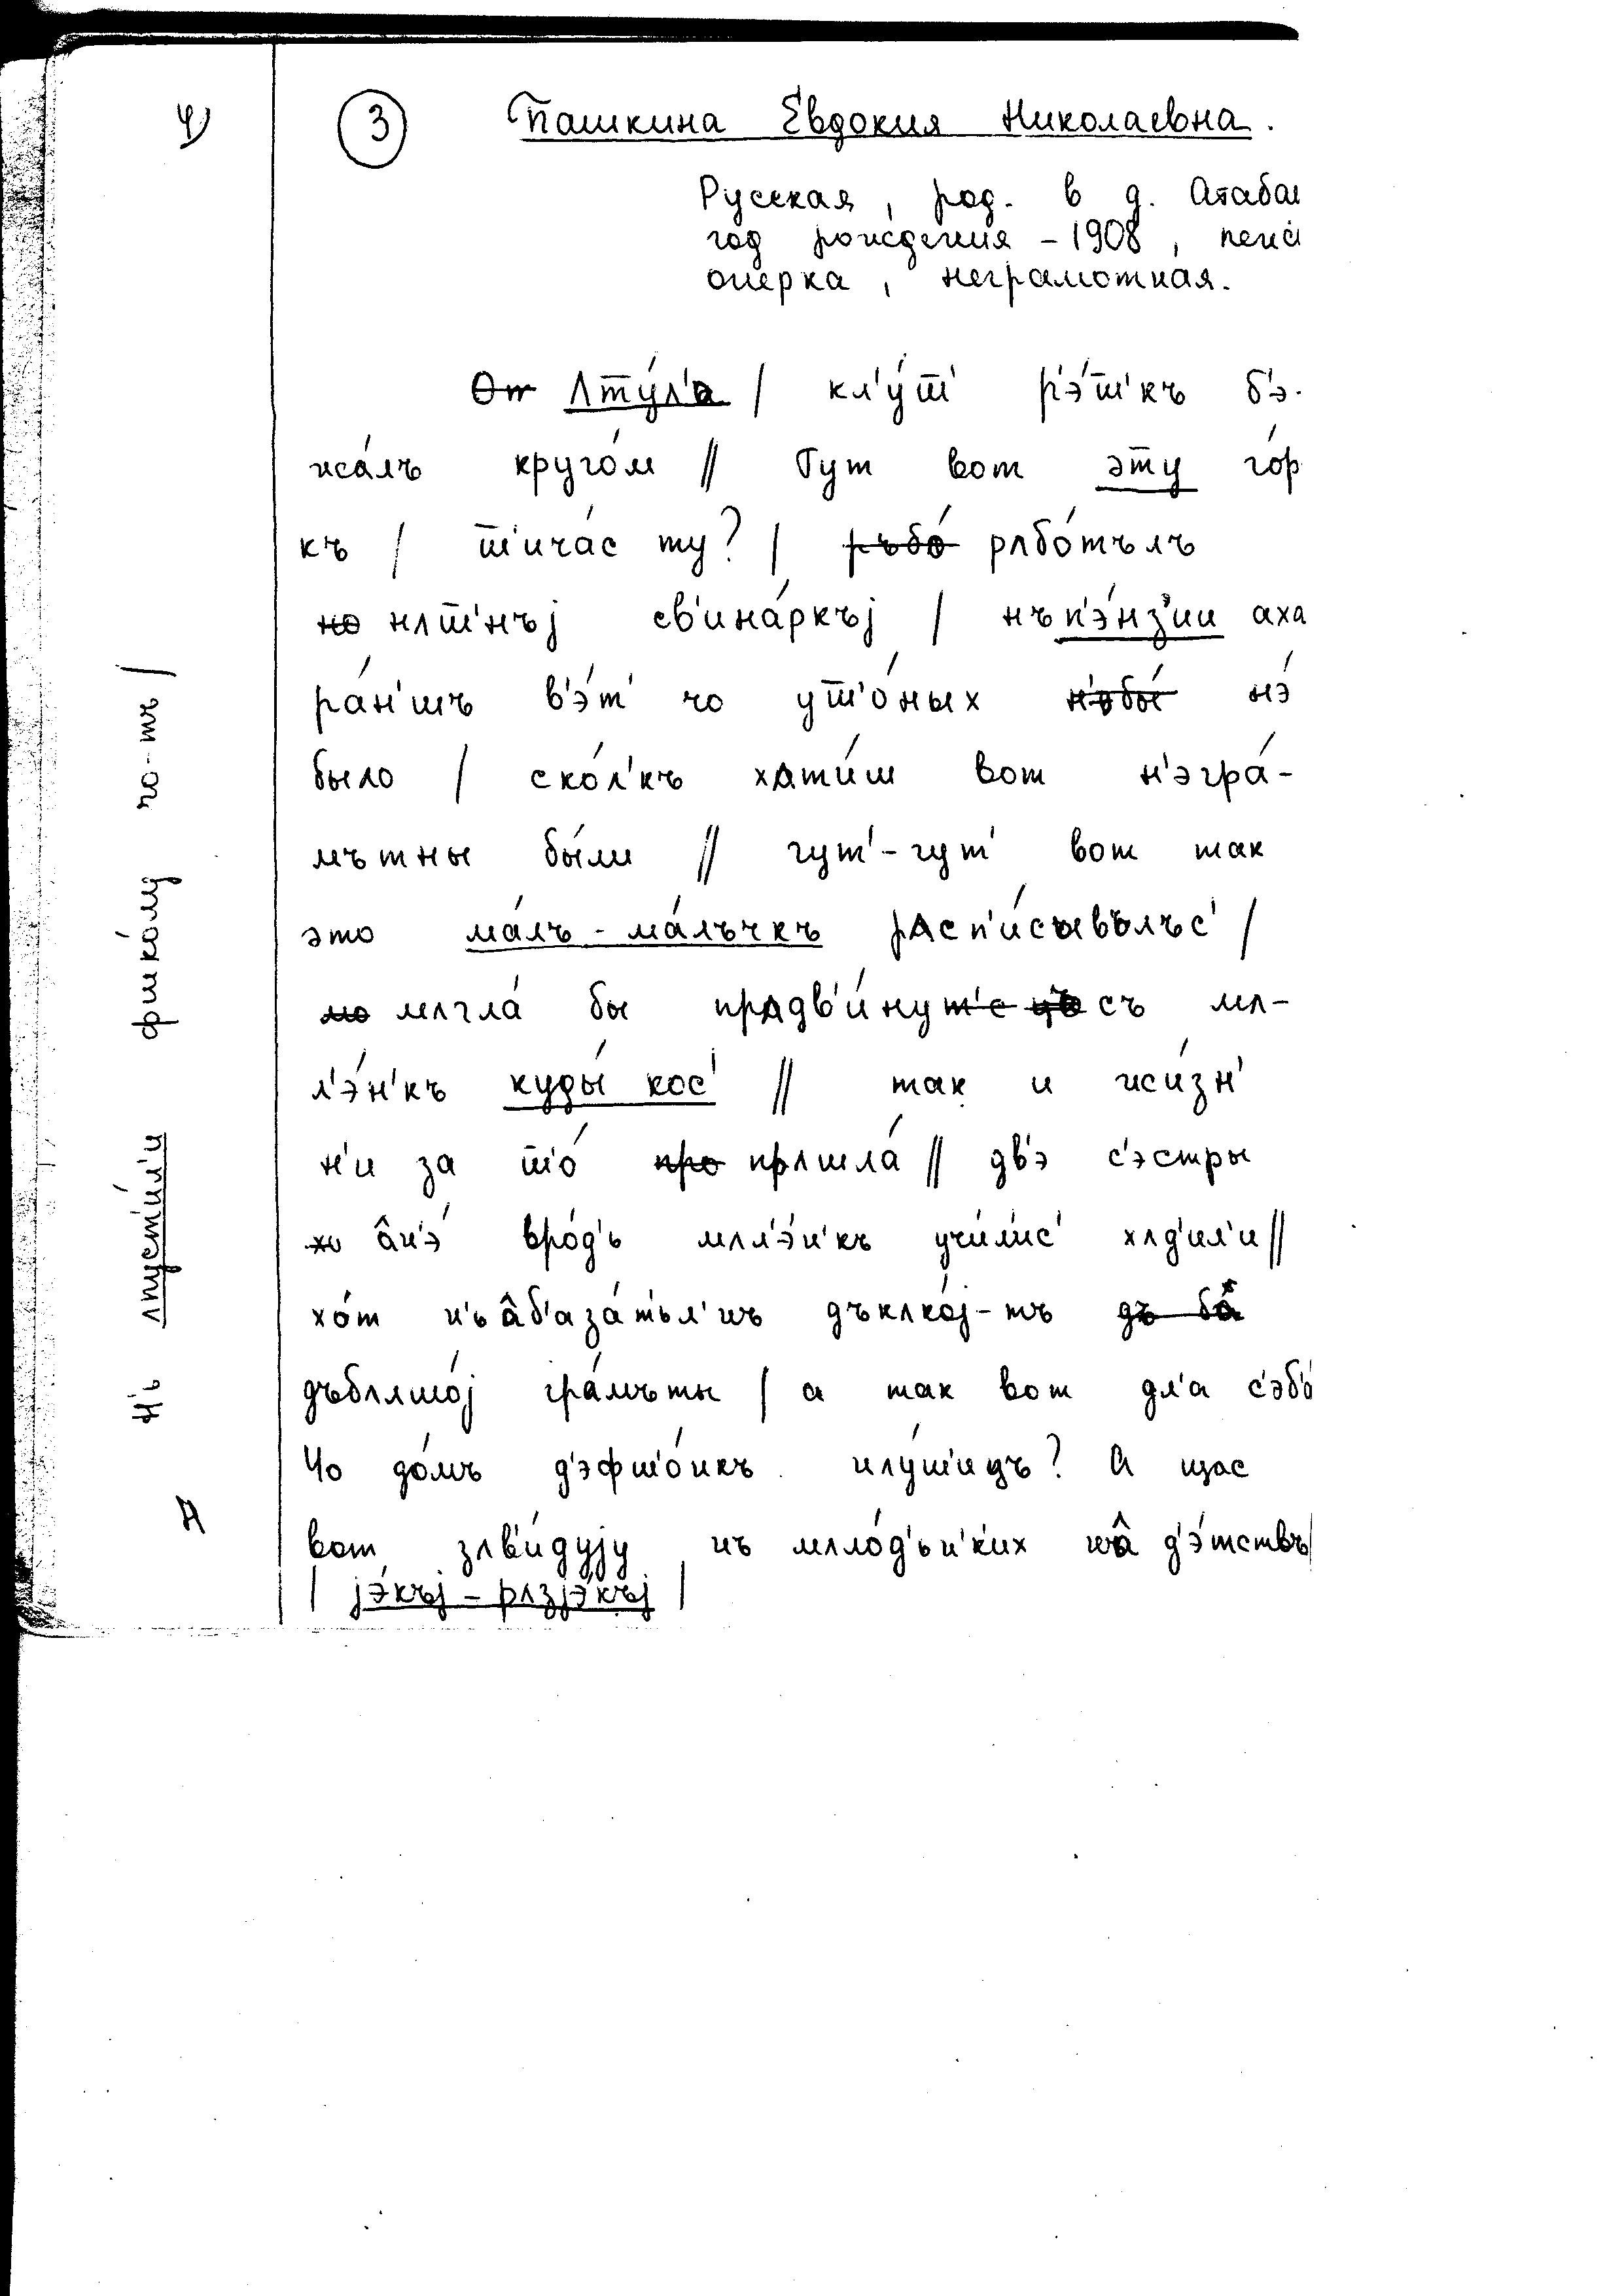 ③ Пашкина Евдокия Николаевна.
Русская, род. в д. Атабае
год рождения – 1908, пенси
онерка, неграмотная.
От Λту́л'а / кл'у́ш' р'э́ш'къ б'э-
жа́лъ круго́м // Тут вот эту го́р
къ / ш'ича́с ту? / ръбо́ рʌбо́тълъ
но нʌш'нъj св'ина́ркъj / нъп'э́нз'ии аха
ра́н'шъ в'э́т' чо уш'о́ных н'ьбы́ нэ́
было / ско́л'къ хʌти́ш вот н'эгра́-
мътны бы́ли // чут'-чут' вот так
это ма́лъ-ма́лъчкъ рʌсп'и́сывълъс' /
мо мʌгла́ бы прʌдв'и́нут'с цъ съ мʌ-
л'э́н'къ куды́ кос' // так и жи́зн'
н'и за ш'о́ про прʌшла́ // дв'э с'эстры
хо âн'э́ вро́д'ь мʌл'э́н'къ учи́лис' хʌд'ил'и //
хо́т н'ьâб'аза́т'ьл'нъ дъкʌко́j-тъ дъ бâ
дъбʌлшо́j гра́мъты / а так вот дл'а с'эб'о́
Чо до́мъ д'эфш'о́нкъ нʌу́ш'ицъ? А щас
вот зʌв'и́дуjу нъ мʌло́д'ьн'ких нâ д'э́тствъ /
/ jэ́къj – рʌзjэ́къj /
н'ь ʌпуст'и́л'и фшко́лу чо-тъ /